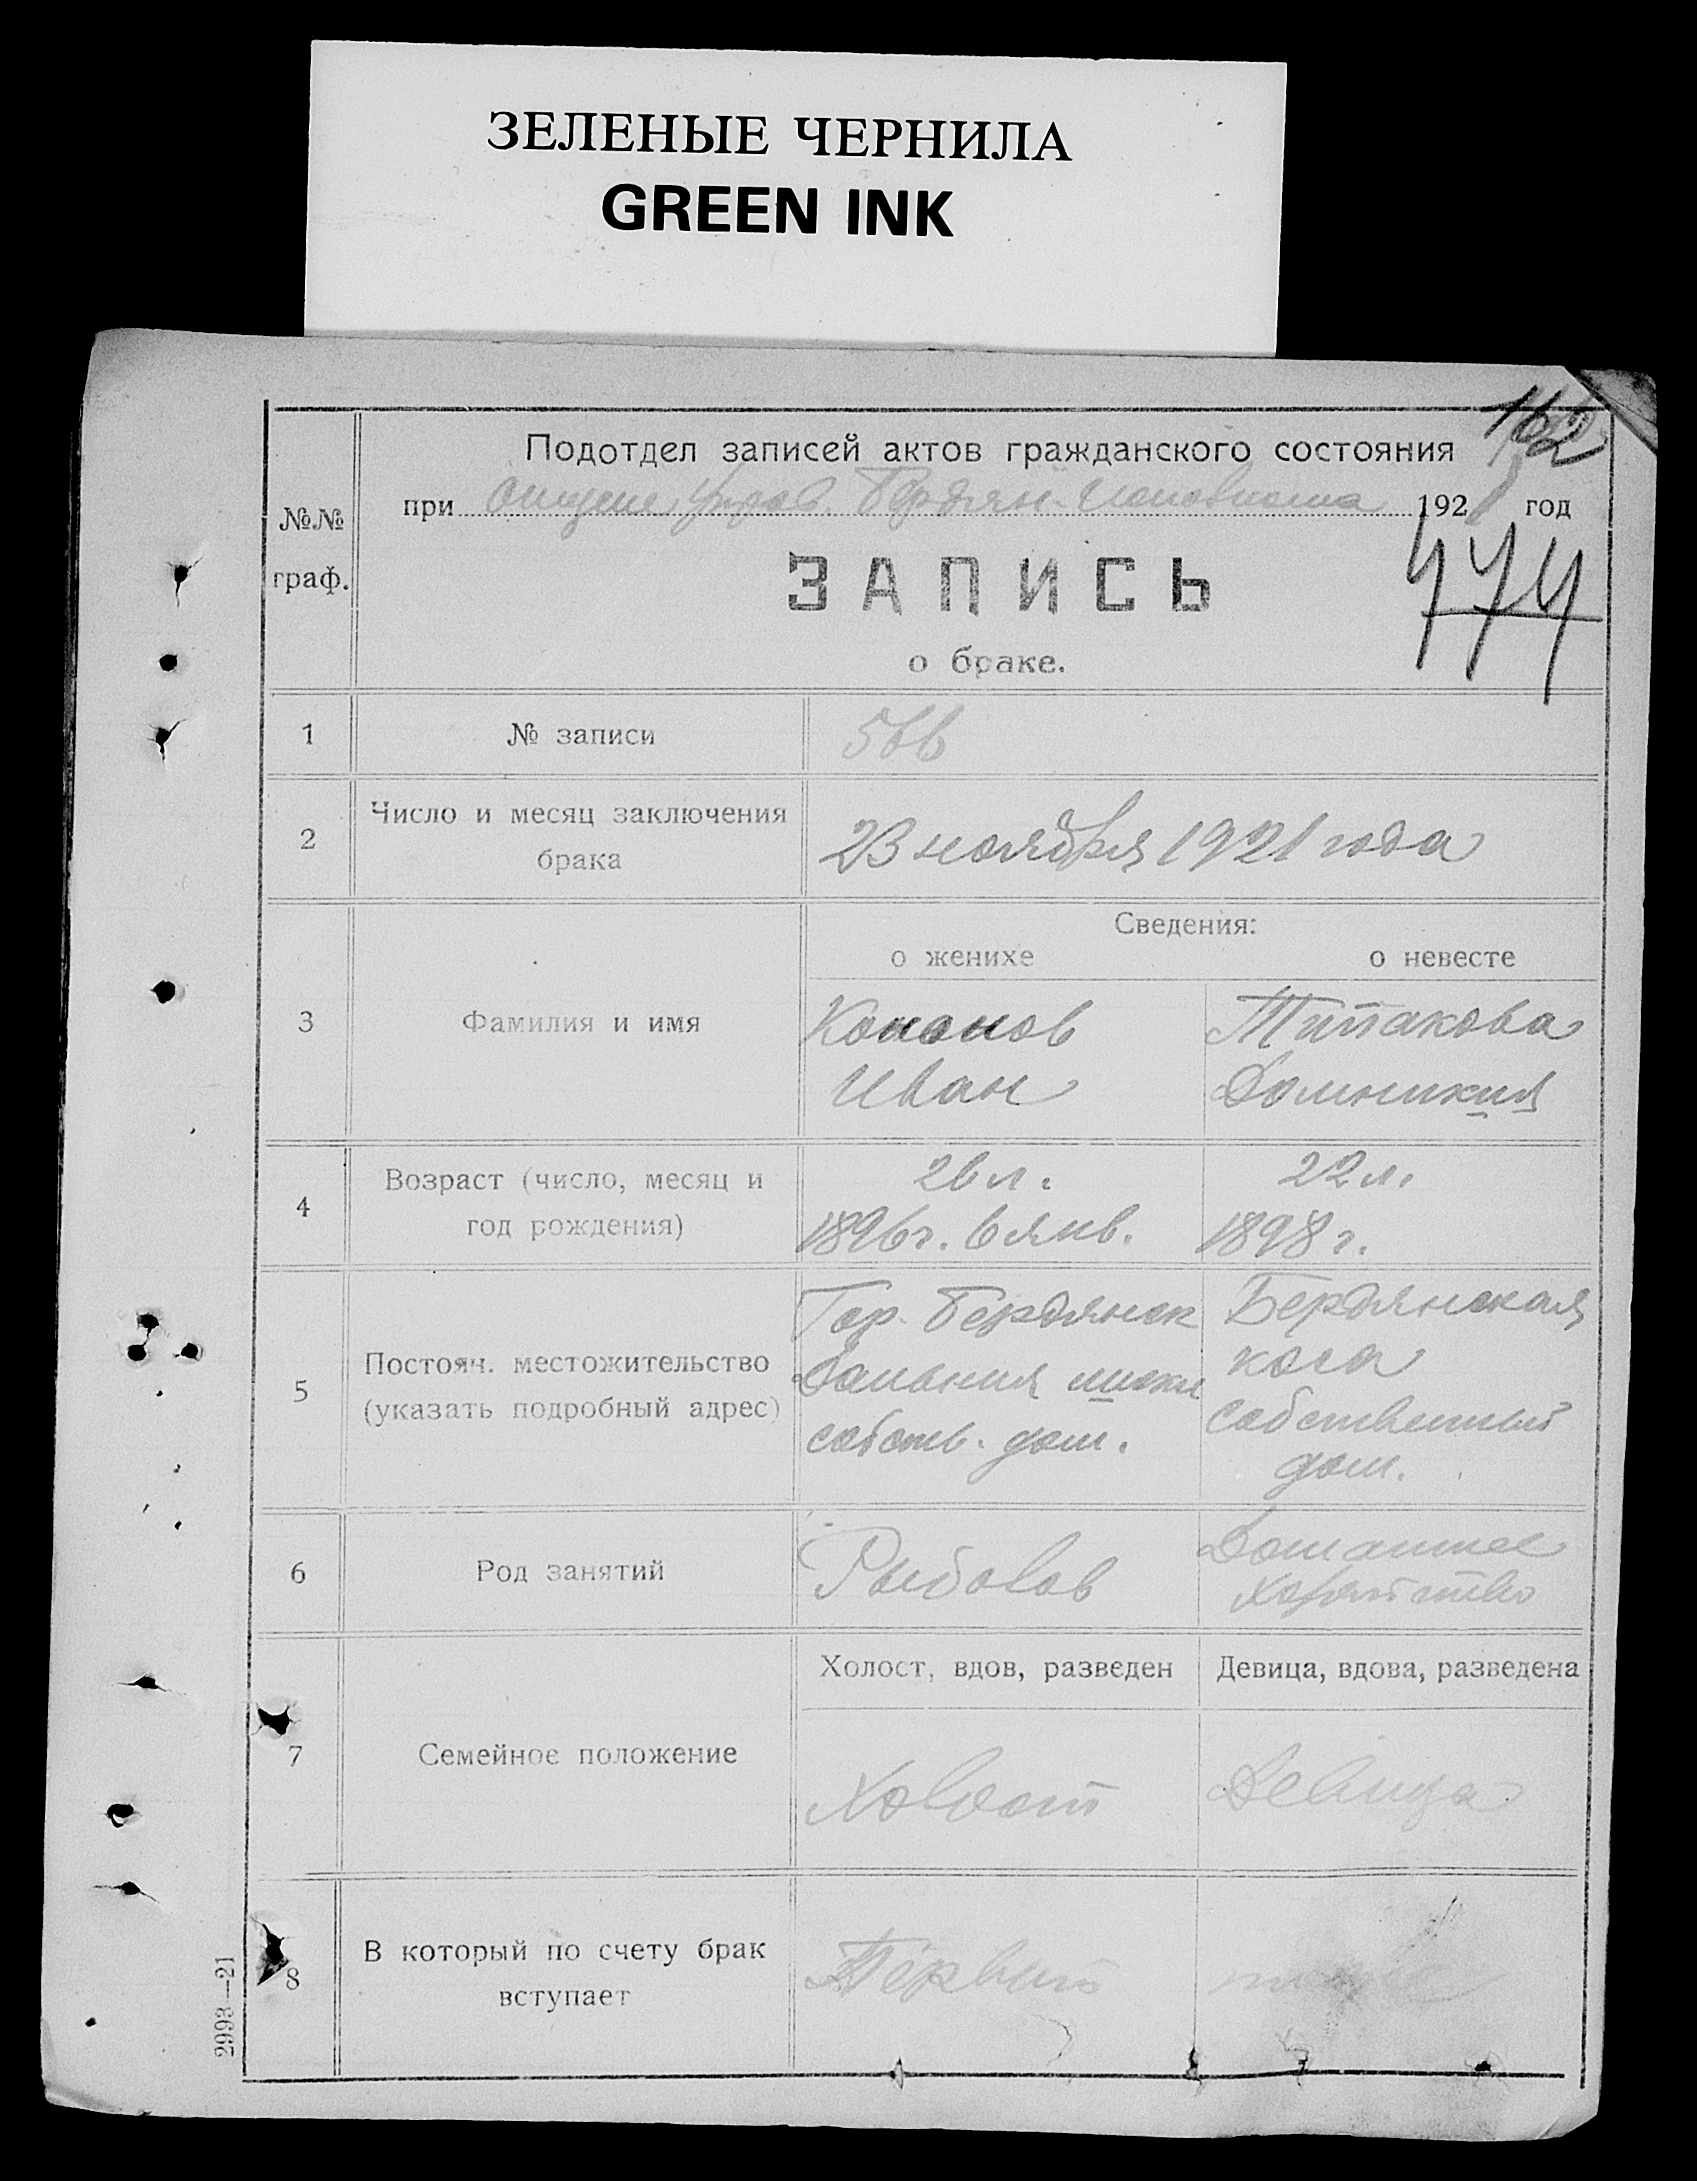 ЗЕЛЕНЫЕ ЧЕРНИЛА
GREEN INK
162
Подотдел записей актов гражданского состояния
№№ граф.
при Управ. Бердян. Исполкома 1921 год
ЗАПИСЬ
о браке.
1 № записи 566
2 Число и месяц заключения брака
23 ноября 1921 года
Сведения:
о женихе о невесте
3 Фамилия и имя
Кононов Типакова
Иван Домникия
4 Возраст (число, месяц и год рождения)
26 л. 22 л.
1896 г. 6 янв. 1898 г.
5 Постоян. местожительство (указать подробный адрес)
Гор. Бердянск Бердянская
коса
собств. дом. собственный
дом.
6 Род занятий
Рыболов Домашнее
хозяйство
7 Семейное положение
Холост, вдов, разведен Девица, вдова, разведена
Холост Девица
8 В который по счету брак вступает
Первый тоже
2993—21